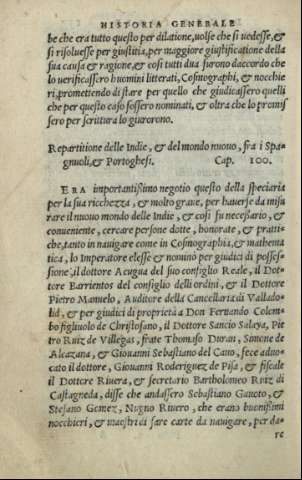 HISTORIA GENERALE
be che era tutto questo per dilatione, uolse che si uedesse, &
si risoluesse per giustitia, per maggiore giustificatione della
sua causa & ragione, & cosi tutti dua furono daccordo che
lo uerificassero huomini litterati, Cosmographi, & nocchie
ri, promettendo di stare per quello che giudicassero quelli
che per questo caso fossero nominati, & oltra che lo promis
sero per scrittura lo giurorono.
Repartitione delle Indie, & del mondo nuouo, fra i Spa-
gnuoli, & Portoghesi. Cap. 100.
ERA importantissimo negotio questo della speciaria
per la sua ricchezza, & molto graue, per hauerse da misu
rare il nuouo mondo delle Indie, & cosi fu necessario, &
conueniente, cercare persone dotte, honorate, & pratti-
che, tanto in nauigare come in Cosmographia, & mathema
tica, lo Imperatore elesse & nominò per giudici di posses-
sione, il dottore Acugua del suo consiglio Reale, il Dot-
tore Barrientos del consiglio delli ordini, & il Dottore
Pietro Manuelo, Auditore della Cancellaria di Vallado-
lid, & per giudici di proprietà a Don Fernando Colom-
bo figliuolo de Christofano, il Dottore Sancio Salaya, Pie
tro Ruiz de Villegas, frate Thomaso Duran, Simone de
Alcazana, & Giouanni Sebastiano del Cano, fece aduo-
cato il dottore, Giouanni Roderiguez de Pisa, & fiscale
il Dottore Riuera, & secretario Bartholomeo Ruiz di
Castagneda, disse che andassero Sebastiano Gauoto, &
Stefano Gomez, Nugno Riuero, che erano buonissimi
nocchieri, & maestri di fare carte da nauigare, per da-
re